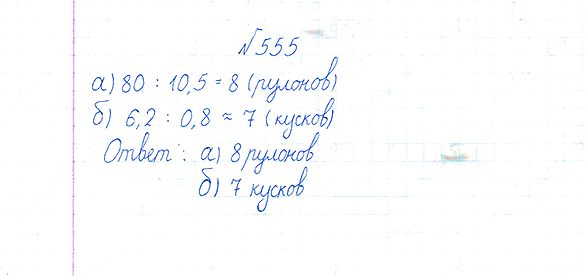 №555
а) 80 : 10,5 = 8 (рулонов)
б) 6,2 : 0,8 ≈ 7 (кусков)
Ответ: а) 8 рулонов
б) 7 кусков